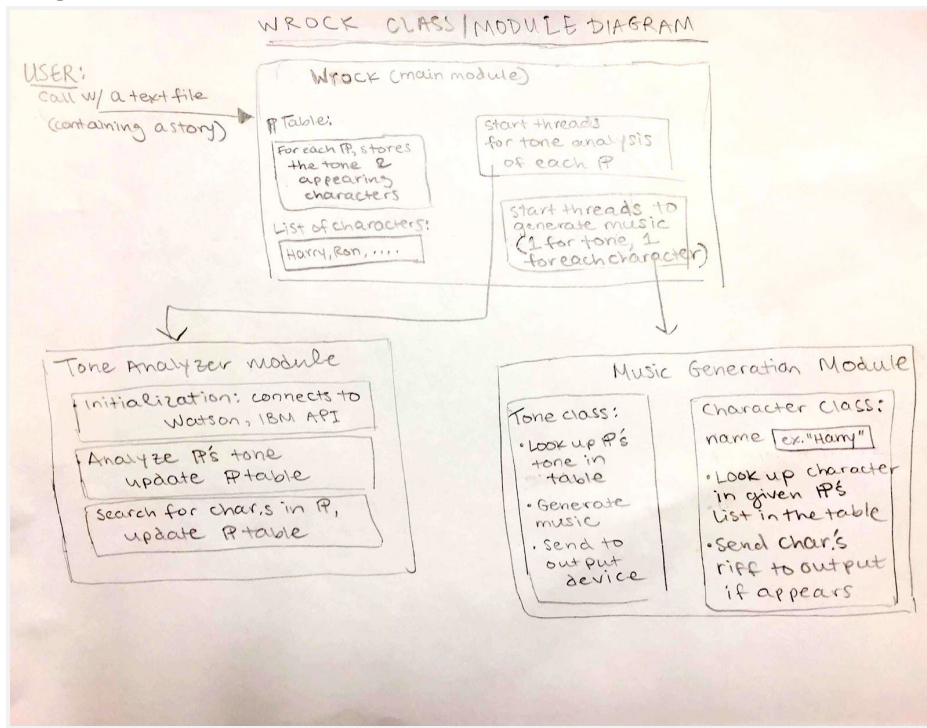 WROCK CLASS/MODULE DIAGRAM
USER:
call w/ a text file
(containing a story)
Wrock (main module)
¶ Table:
For each ¶, stores
the tone &
appearing
characters
List of characters:
Harry, Ron, ....
start threads
for tone analysis
of each ¶
start threads to
generate music
(1 for tone, 1
for each character)
Tone Analyzer module
• initialization: connects to
Watson, IBM API
• Analyze ¶'s tone
update ¶ table
Search for char.s in ¶,
update ¶ table
Music Generation Module
Tone class:
• Look up ¶'s
tone in
table
• Generate
music
• Send to
output
device
Character Class:
name ex. "Harry"
• Look up character
in given ¶'s
list in the table
• Send char.'s
riff to output
if appears